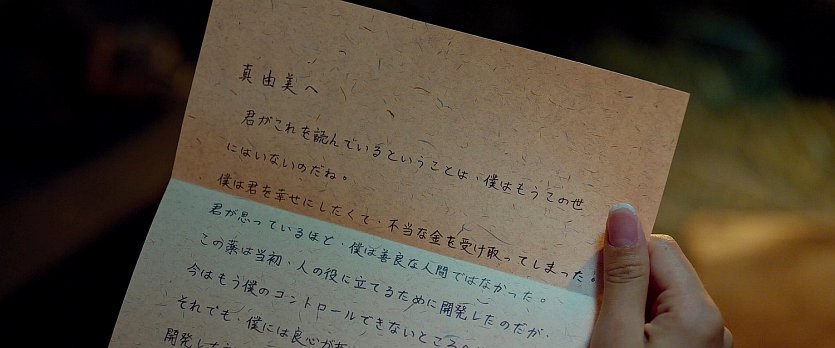 真由美へ
君がこれを読んでいるということは、僕はもうこの世
にはいないのだね。
僕は君を幸せにしたくて、不当な金を受け取ってしまった。
君が思っているほど、僕は善良な人間ではなかった。
この薬は当初、人の役に立てるために開発したのだが、
今はもう僕のコントロールできないところ
それでも、僕には良心が
開発した